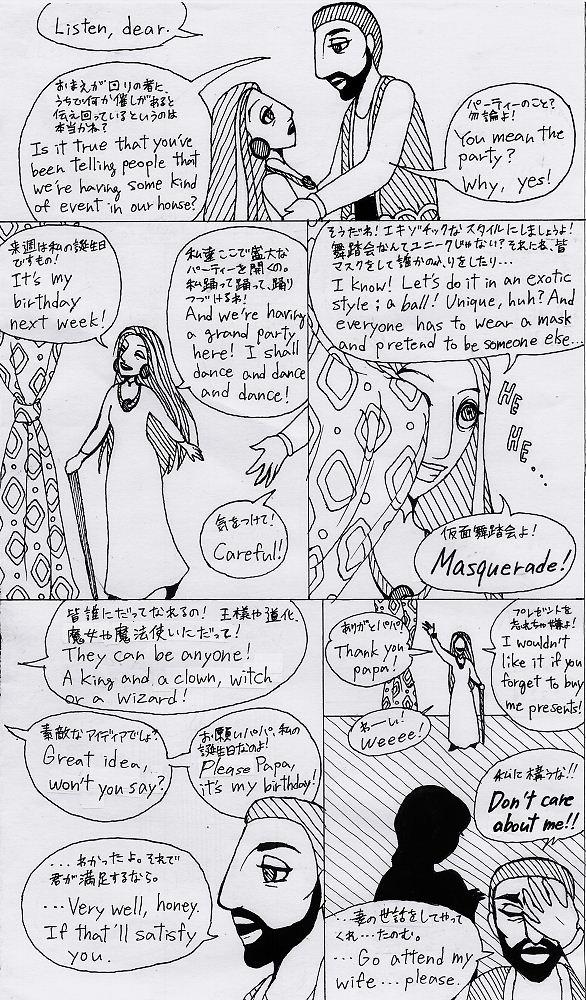 Listen, dear.
おまえが回りの者に、
うちで何か催しがあると
伝え回っているというのは
本当かね？
Is it true that you've
been telling people that
we're having some kind
of event in our house?
パーティーのこと？
勿論よ！
You mean the
party?
Why, yes!
来週は私の誕生日
ですもの！
It's my
birthday
next week!
私達ここで盛大な
パーティーを開くの。
私踊って踊って、踊り
つづけるわ！
And we're having
a grand party
here! I shall
dance and dance
and dance!
気をつけて！
Careful!
そうだわ！エキゾチックなスタイルにしましょうよ！
舞踏会なんてユニークじゃない？それにね、皆
マスクをして誰かのふりをしたり...
I know! Let's do it in an exotic
style; a ball! Unique, huh? And
everyone has to wear a mask
and pretend to be someone else...
HE
HE...
仮面舞踏会よ！
Masquerade!
皆誰にだってなれるの！王様や道化、
魔女や魔法使いにだって！
They can be anyone!
A king and a clown, witch
or a wizard!
素敵なアイディアでしょ？
Great idea,
won't you say?
お願いパパ、私の
誕生日なのよ！
Please Papa,
it's my birthday!
...わかったよ。それで
君が満足するなら。
...Very well, honey.
If that'll satisfy
you.
ありがとパパ！
Thank you
papa!
わーい！
Weeee!
プレゼントを
忘れちゃ嫌よ！
I wouldn't
like it if you
forget to buy
me presents!
私に構うな!!
Don't care
about me!!
...妻の世話をしてやって
くれ...たのむ。
...Go attend my
wife...please.